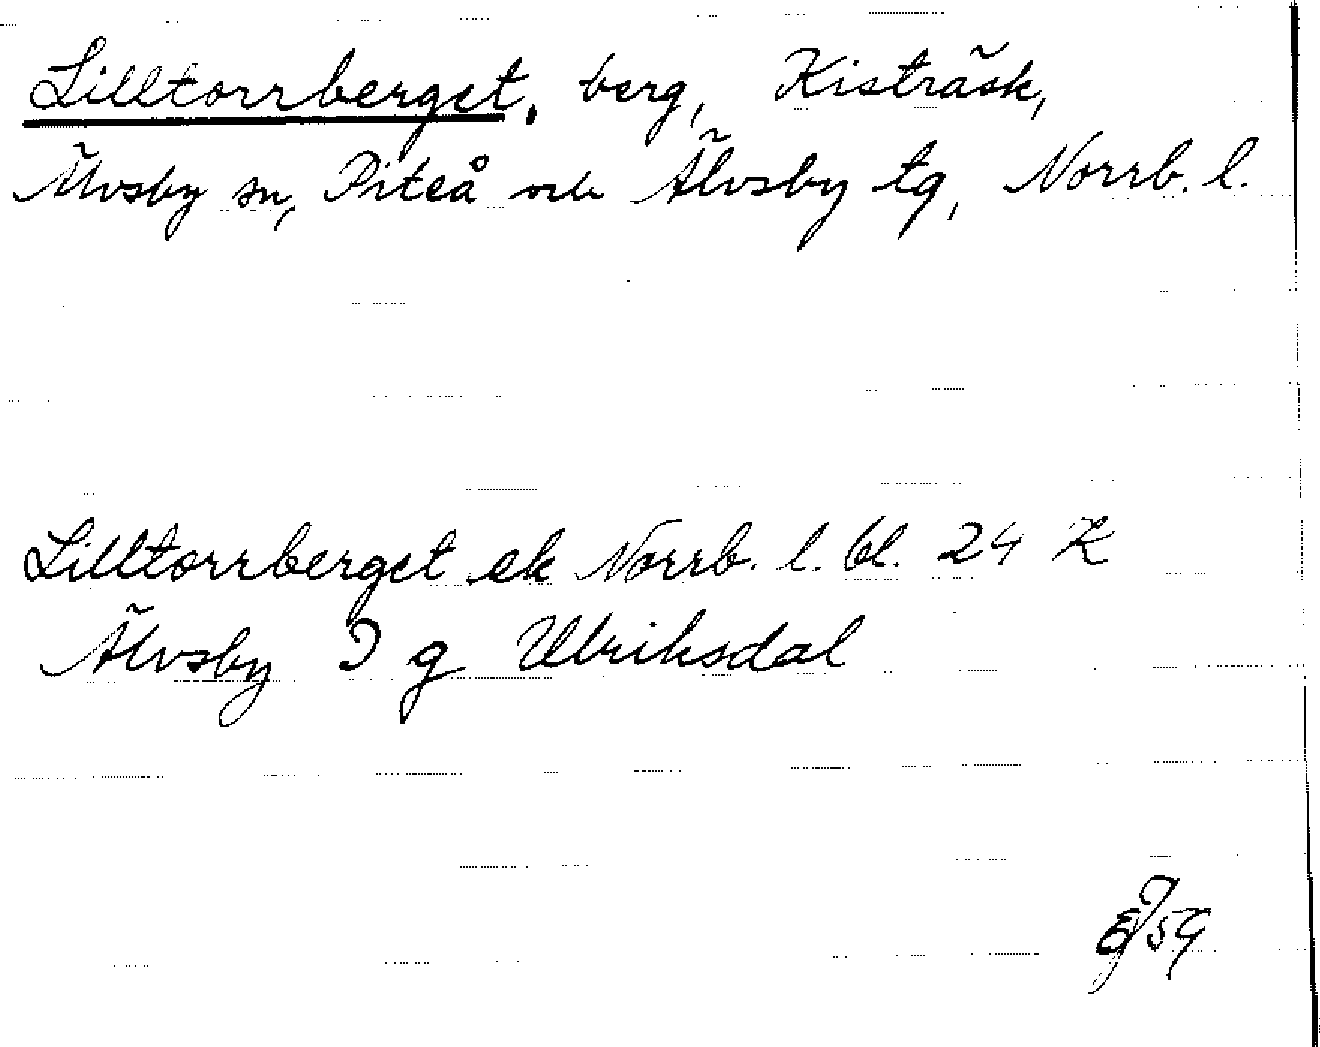 Lilltorrberget, berg, Kisträsk,
Älvsby sn, Piteå och Älvsby tg, Norrb. l.
Lilltorrberget ek Norrb. l. bl. 24 K
Älvsby I g Ulriksdal
59